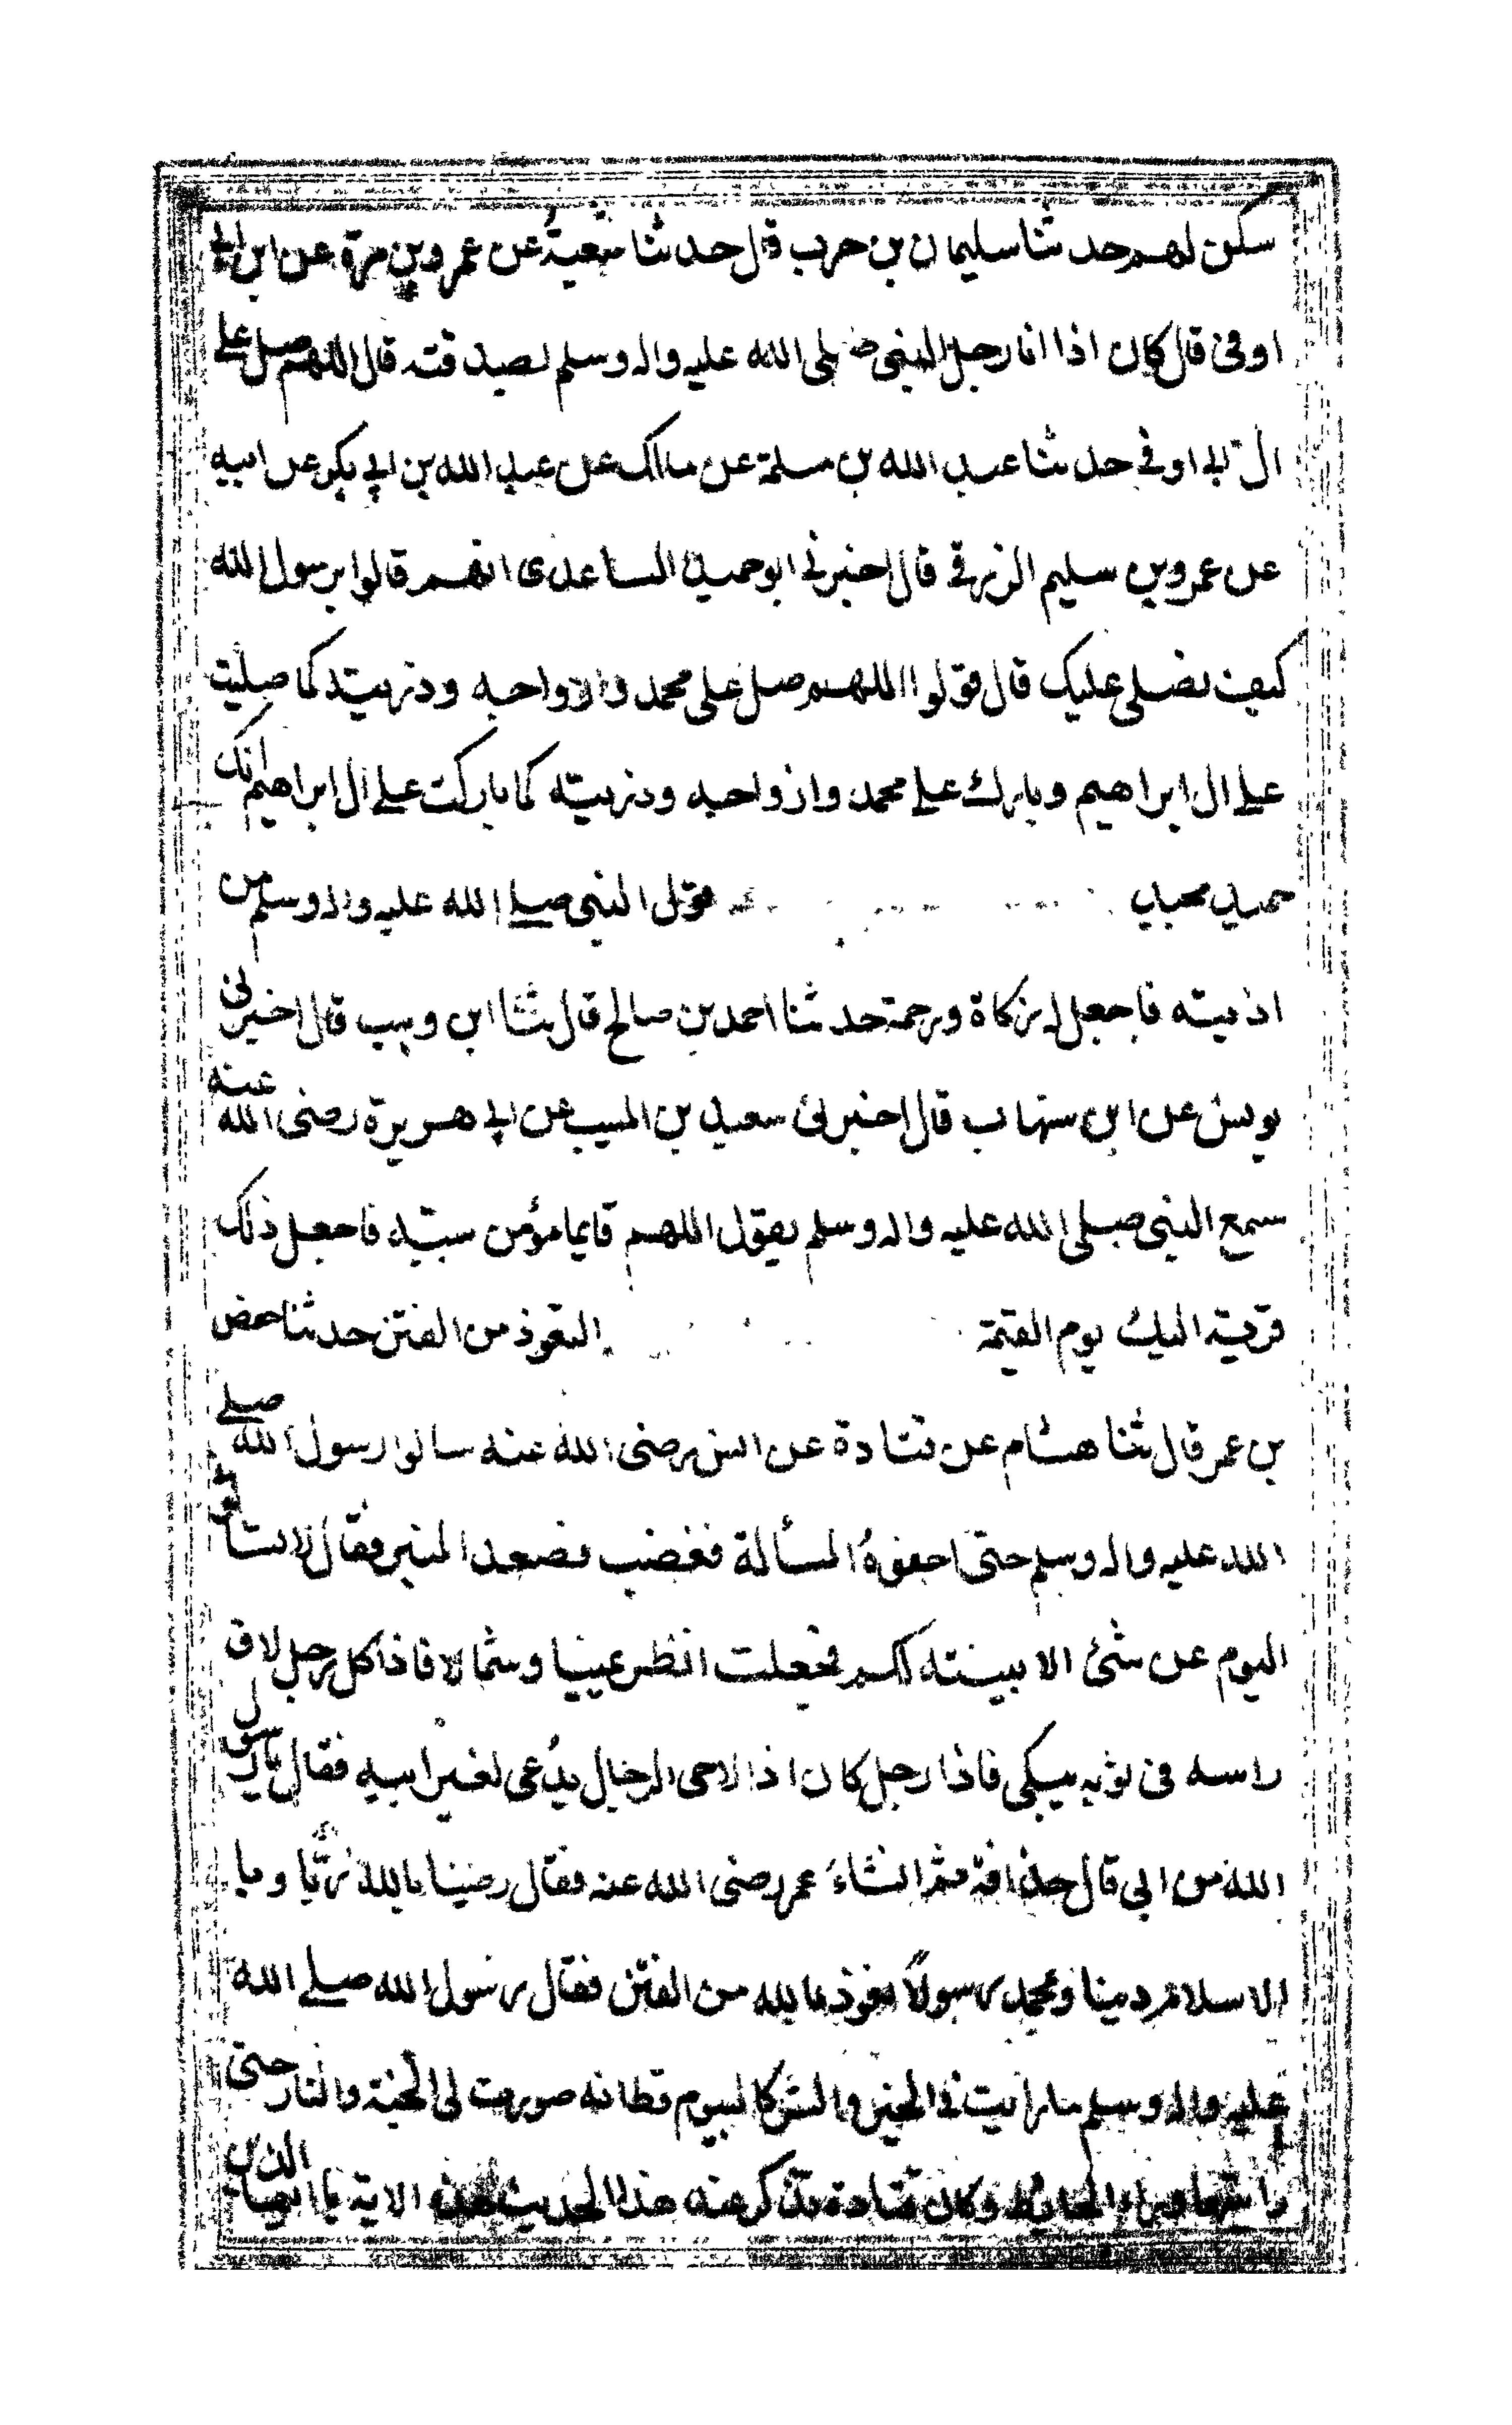 سكن لهم حدثنا سليمان بن حرب قال حدثنا شعبة عن عمرو بن مرة عن ابن ابي
اوفى قال كان اذا اتا رجل النبي صلى الله عليه واله وسلم بصدقته قال اللهم صل على
ال ابي اوفى حدثنا عبد الله بن مسلمة عن مالك عن عبد الله بن ابي بكر عن ابيه
عن عمرو بن سليم الزرقي قال اخبرني ابو حميد الساعدى انهم قالوا يرسول الله
كيف نصلى عليك قال قولوا اللهم صل على محمد وازواجه وذريته كما صليت
على ال ابراهيم وبارك على محمد وازواجه وذريته كما باركت على ال ابراهيم انك
حميد مجيد قول النبي صلى الله عليه واله وسلم من
اذيته فاجعل له زكاة ورحمة حدثنا احمد بن صالح قال ثنا ابن وهب قال اخبرنى
يونس عن ابن شهاب قال اخبرنى سعيد بن المسيب عن ابي هريرة رضى الله عنه
سمع النبى صلى الله عليه واله وسلم يقول اللهم فايما مؤمن سببته فاجعل ذلك
قربة اليك يوم القيمة التعوذ من الفتن حدثنا حفض
بن عمر قال ثنا هشام عن قتادة عن انس رضى الله عنه سالوا رسول الله صلى
الله عليه واله وسلم حتى احفوهُ المسألة فغضب فصعد المنبر فقال لا تسألونى
اليوم عن شئ الا بينته لكم فجعلت انظر يمينا وشمالا فاذا كل رجل لاف
راسه فى ثوبه يبكى فاذا رجل كان اذا لاحى الرجال يدُعى لغير ابيه فقال يا رسول
الله من ابى قال حذافة ثم انشاءَ عمر رضى الله عنه فقال رضينا بالله ربًّا وبا
الاسلام دينا وبمحمد رسولاً نعوذ بالله من الفتن فقال رسول الله صلى الله
عليه واله وسلم ما رايت في الخير والشر كاليوم قط انه صورت لى الجنة والنار حتى
رايتهما وراء الحايط وكان قتادة يذكر عند هذا الحديث هذه الاية يا ايها الذين